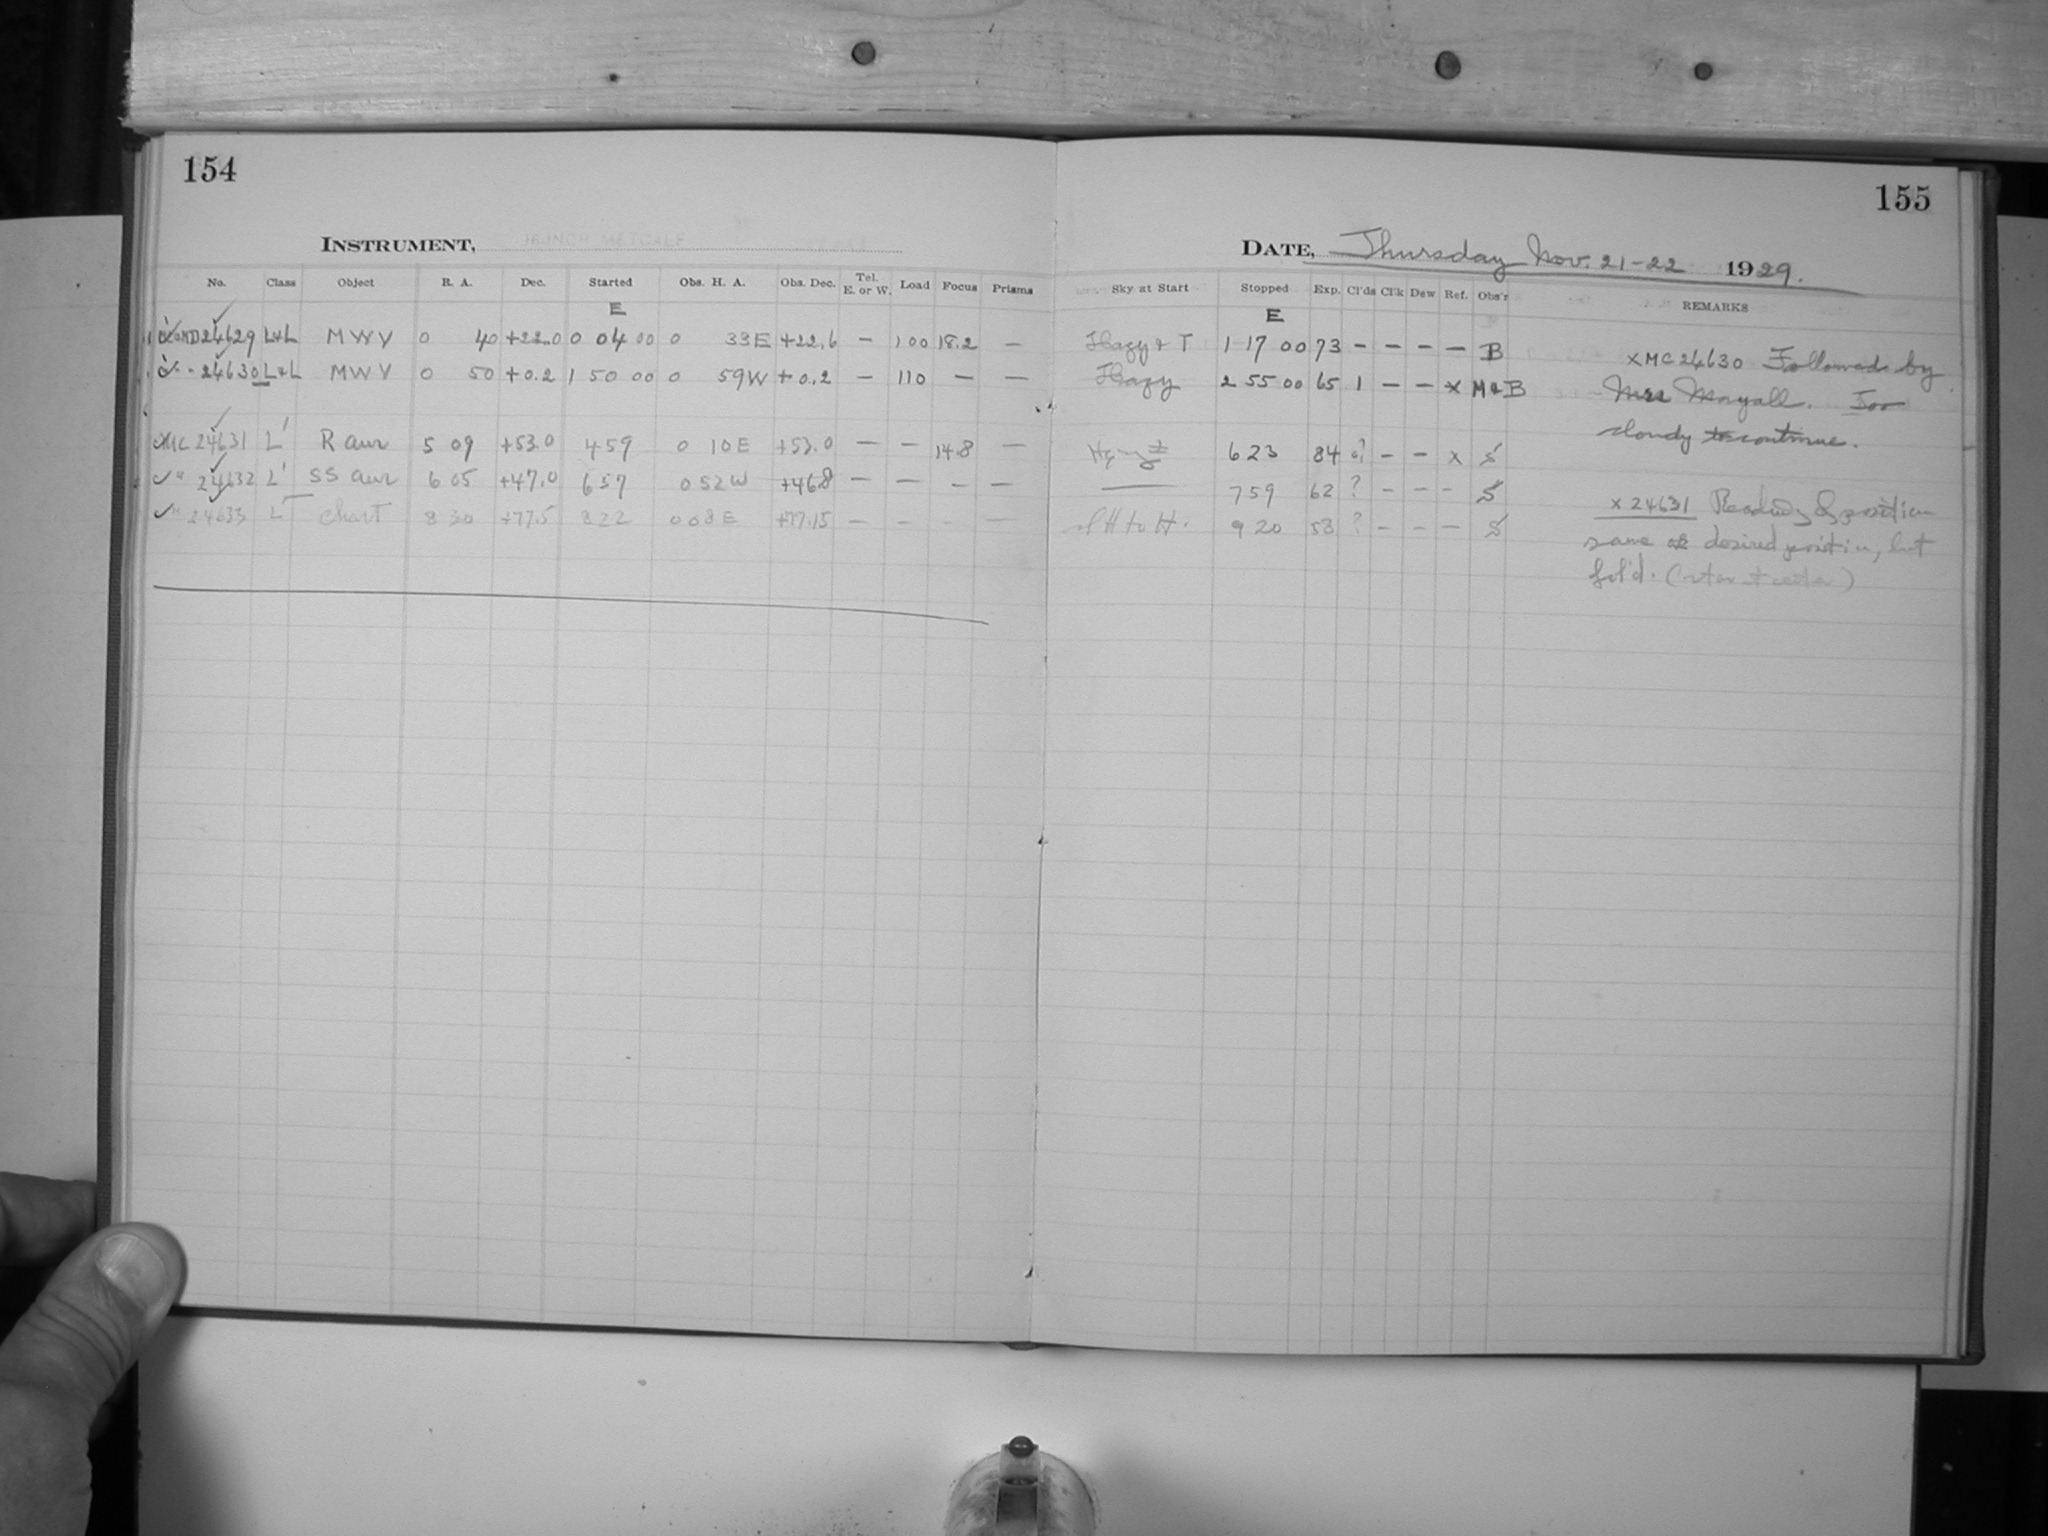 154
155
INSTRUMENT, 16-INCH METCALF
DATE, Thursday Nov. 21-22 1929.
No. Class Object R. A. Dec. Started Obs. H. A. Obs. Dec. Tel. E. or W. Load Focus Prisms
Sky at Start Stopped Exp. Cl'ds Cl'k Dew Ref. Obs'r REMARKS
E
E
24629 L+L MWV 0 40 +22.0 0 04 00 0 33E +22.6 — 100 18.2 — Hazy + T 1 17 00 73 – – – – B
" 24630 L+L MWV 0 50 +0.2 1 50 00 0 59W +0.2 — 110 — — Hazy 2 55 00 65 1 – – x M+B
MC 24631 L' R Aur 5 09 +53.0 4 59 0 10E +53.0 — — 14.8 — 6 23 84 ? – – x S
" 24632 L' SS Aur 6 05 +47.0 6 57 0 52W +46.8 — — – — —— 7 59 62 ? – – – S
" 24633 L Chart 8 30 +77.5 8 22 0 08E +77.15 — – – — H to H. 9 20 58 ? – – – S
x MC 24630 Followed by
Mrs Mayall. Too
cloudy to continue.
x 24631 position
same as desired position, but
fol'd.